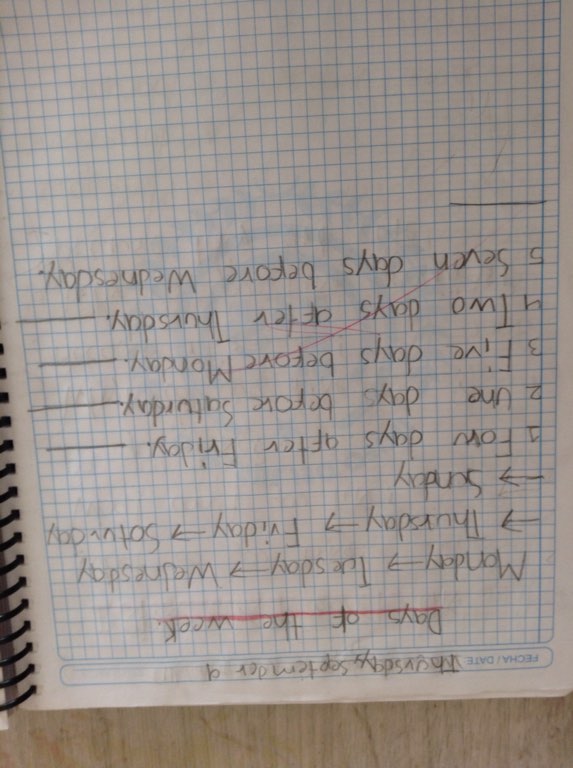 FECHA / DATE Thursday, september 9
Days of the week.
Monday → Tuesday → Wednesday
→ Thursday → Friday → Saturday
→ Sunday
1 Four days after Friday.
2 One days before Saturday.
3 Five days before Monday.
4 Two days after Thursday.
5 Seven days before Wednesday.